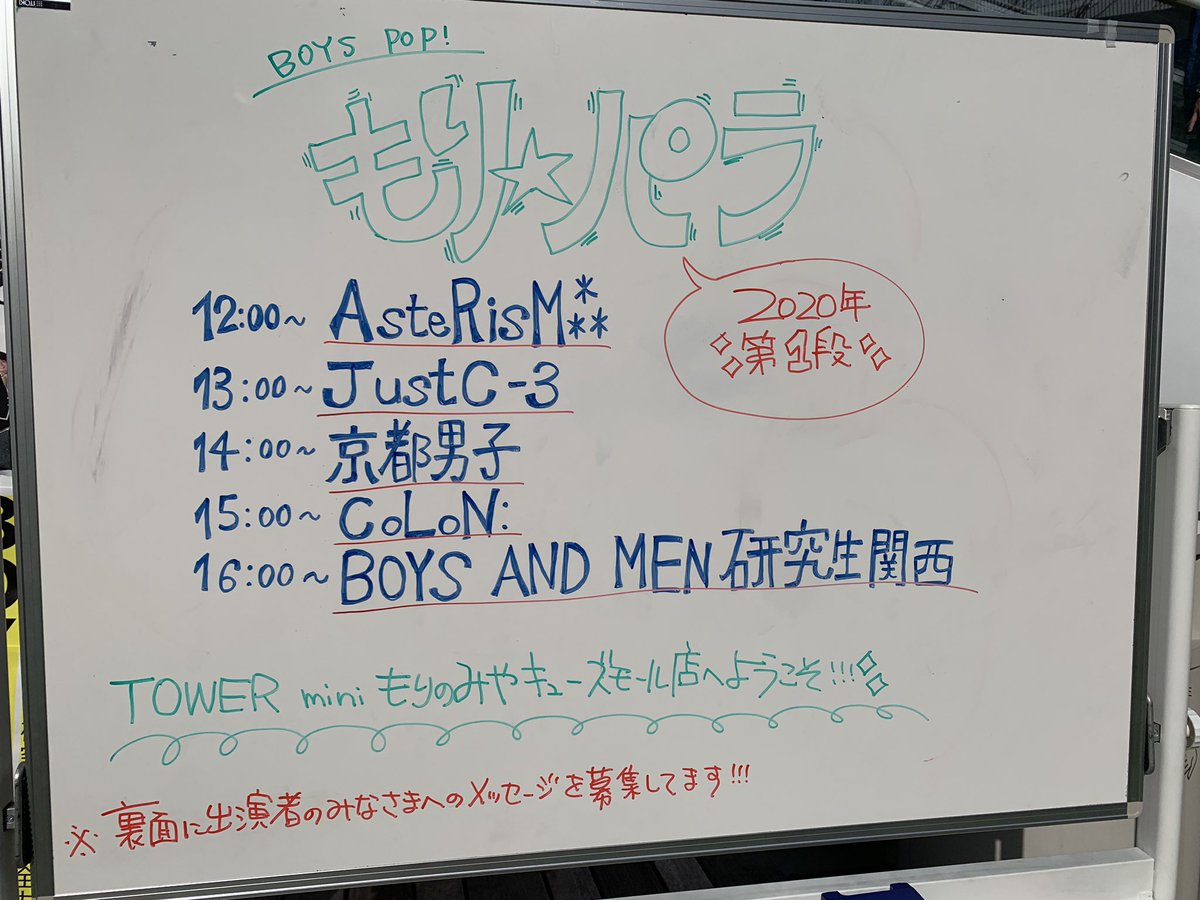 BOYS POP!
もり☆パラ
2020年
第1段
12:00~ AsteRisM***
13:00~ JustC-3
14:00~ 京都男子
15:00~ CoLoN:
16:00~ BOYS AND MEN 研究生関西
TOWER mini もりのみやキューズモール店へようこそ!!!
※ 裏面に出演者のみなさまへのメッセージを募集してます!!!